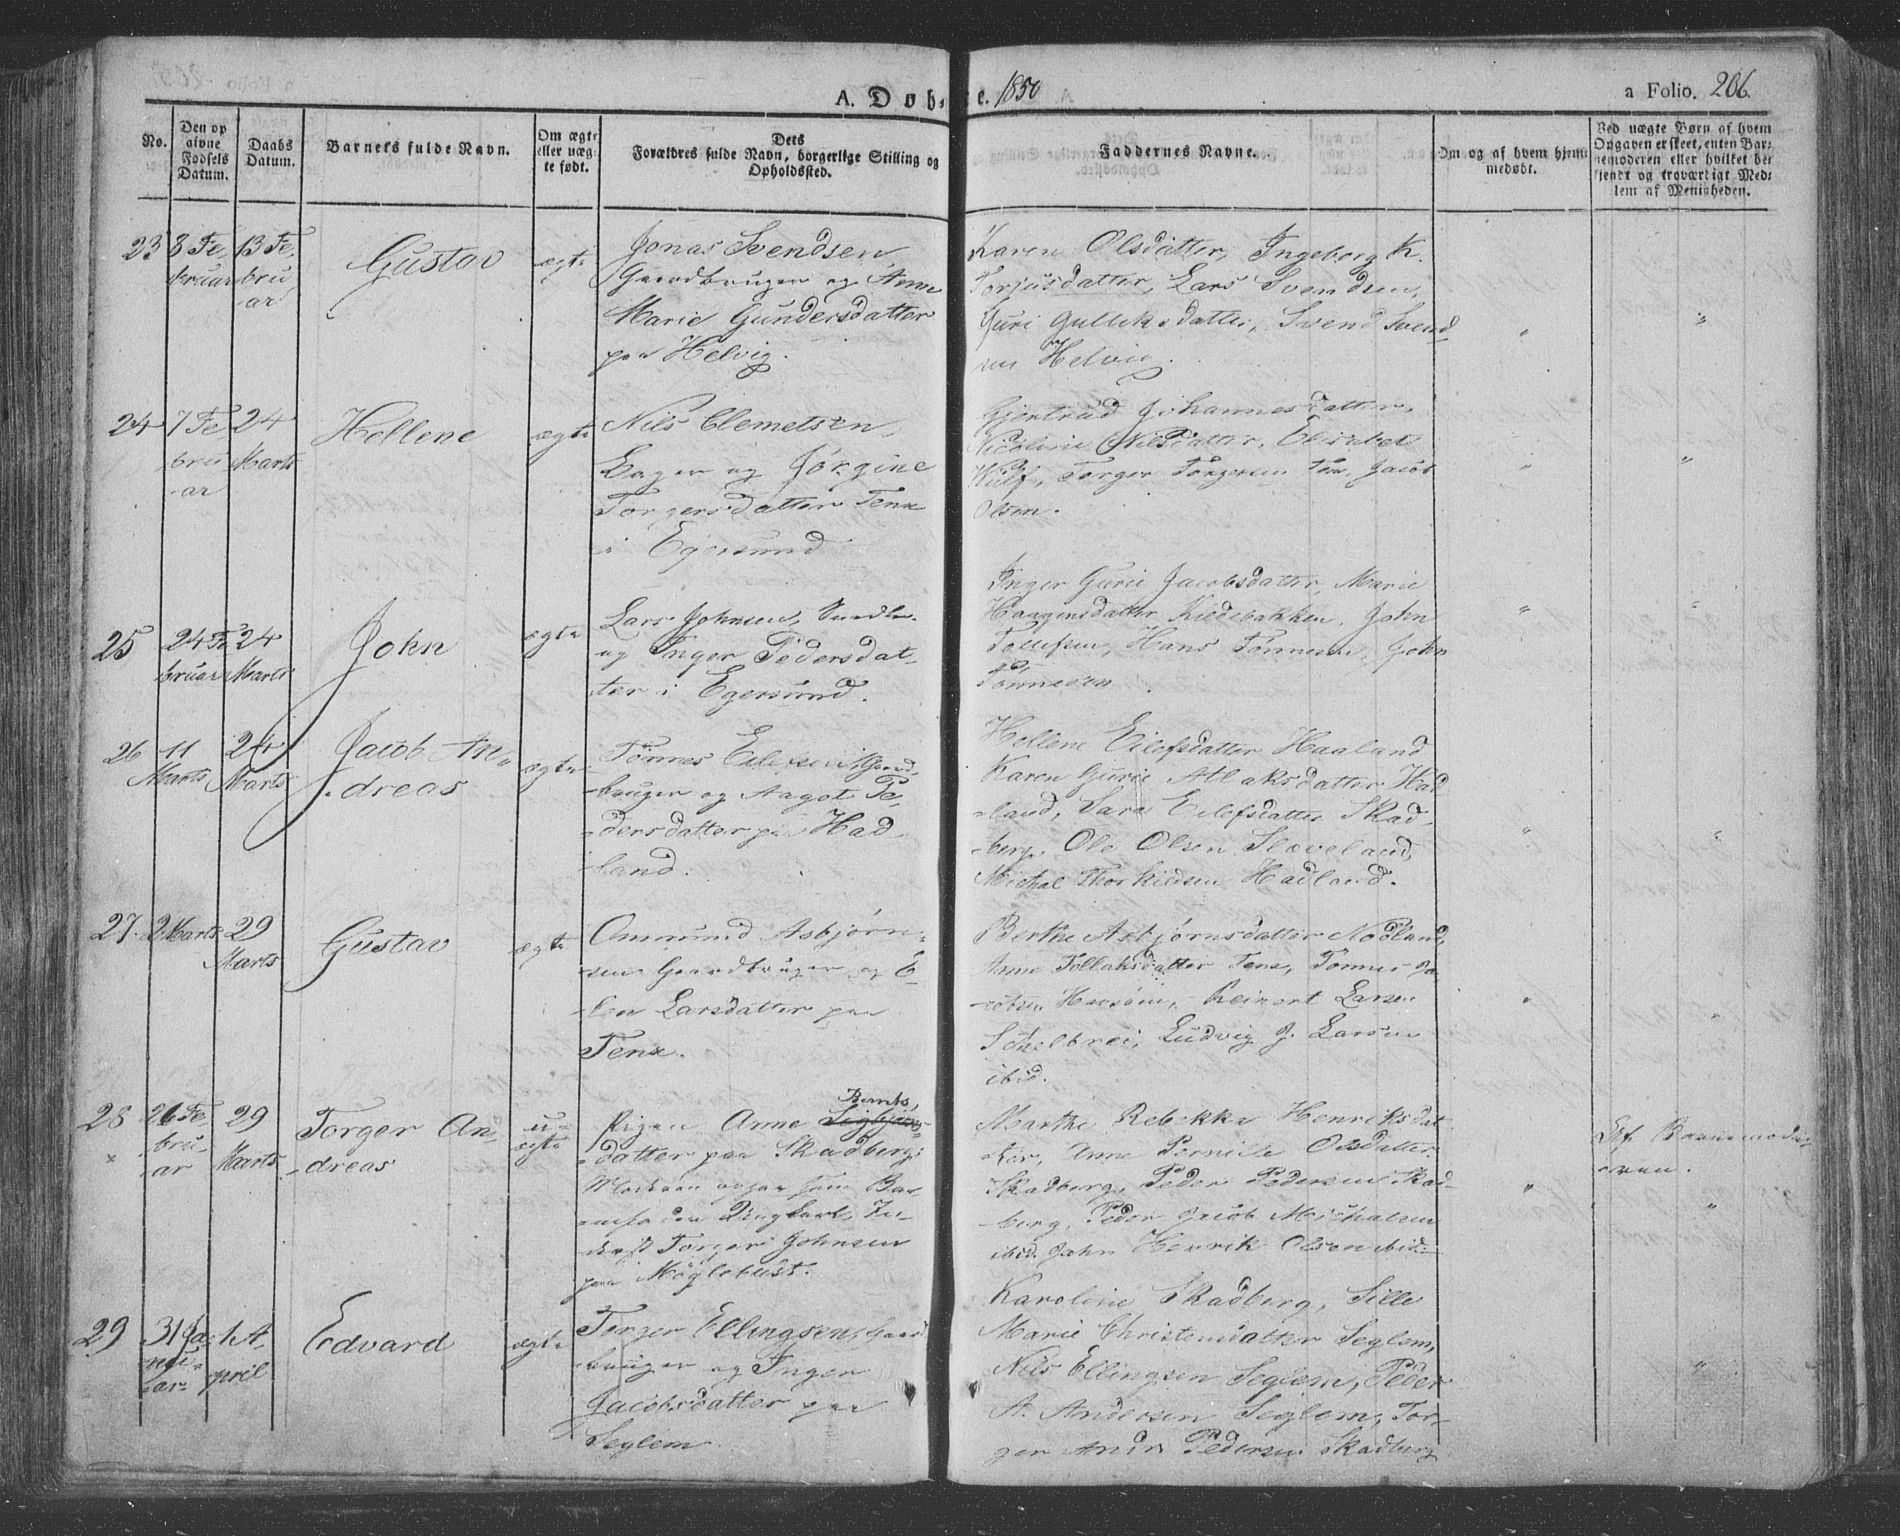 A. Døbte. 1850
a Folio. 206.
No.
Den opgivne Fødsels Datum.
Daabs Datum.
Barnets fulde Navn.
Om ægte eller uægte født.
Dets Forældres fulde Navn, borgerlige Stilling og Opholdssted.
Faddernes Navne.
Om og af hvem hjemmedøbt.
Ved uægte Børn af hvem Opgaven er skeet, enten Barnemoderen eller hvilket bekjendt og troværdigt Medlem af Menigheden.
23
8 Fe-
bruar
13 Fe-
bru
ar
Gustav
ægte
Jonas Svendsen,
Gaardbruger og Anne
Marie Gundersdatter
paa Helvig.
Karen Olsdatter, Ingeborg K.
Torjusdatter, Lars Svendsen,
Guri Gulleksdatter, Svend Svend-
sen Helvig.
24
7 Fe
bru
ar
24
Marts
Hellene
ægte
Nils Clemetsen,
Bager og Jørgine
Torgersdatter Tenx
i Egersund
Gjertrud Johannesdatter,
Nicoline Nilsdatter, Elisabet
Wulf, Torger Torgersen Tenx, Jacob
Olsen.
25
24 Fe
bruar
24
Marts
John
ægte
Lars Johnsen,
og Inger Pedersdat-
ter i Egersund.
Inger Gurie Jacobsdatter, Marie
Haagensdatter Kildebakken, John
Tollefsen, Hans Tønnesen, John
Tønnesen
26
11
Marts
24
Marts
Jacob An-
dreas
ægte
Tønnes Eilefsen, Gaard-
bruger og Aagot Pe-
dersdatter paa Had-
land.
Hellene Eilefsdatter Haaland
Karen Gurie Atlaksdatter Had
land, Sara Eilefsdatter Skad-
berg, Ole Olsen Slæveland,
Michal Thorkildsen Hadland.
27.
2 Marts
29
Marts
Gustav
ægte
Ommund Asbjørn-
sen Gaardbruger og E-
len Larsdatter paa
Tenx.
Berthe Asbjørnsdatter Nodland,
Anne Tollaksdatter Tenx, Tønnes Ja-
cobsen Havsøen, Reinert Larsen
Schelbrei, Ludvig J. Larsen
ibid.
28
26 Fe-
bru-
ar
29
Marts
Torger An-
dreas
u-
ægte
Pigen Anne
Bernts,
datter paa Skadberg.
Moderen opgav som Bar-
nefader Ungkarl,
Torger Johnsen
paa Møglebust.
Marthe Rebekka Henriksdat-
ter, Anne Pernille Olsdatter
Skadberg, Peder Pedersen Skad-
berg, Peder Jacob Michalsen
ibid. John Henrik Olsen ibid.
Ef. Barnemode-
ren.
29
31 Ja-
nu-
ar
1 A-
pril
Edvard
ægte
Torger Ellingsen, Gaard
bruger og Inger
Jacobsdatter paa
Seglem
Karoline Skadberg, Sille
Marie Christensdatter Seglem,
Nils Ellingsen Seglem, Peder
A. Andersen Seglem, Tor-
ger Andr. Pedersen Skadberg